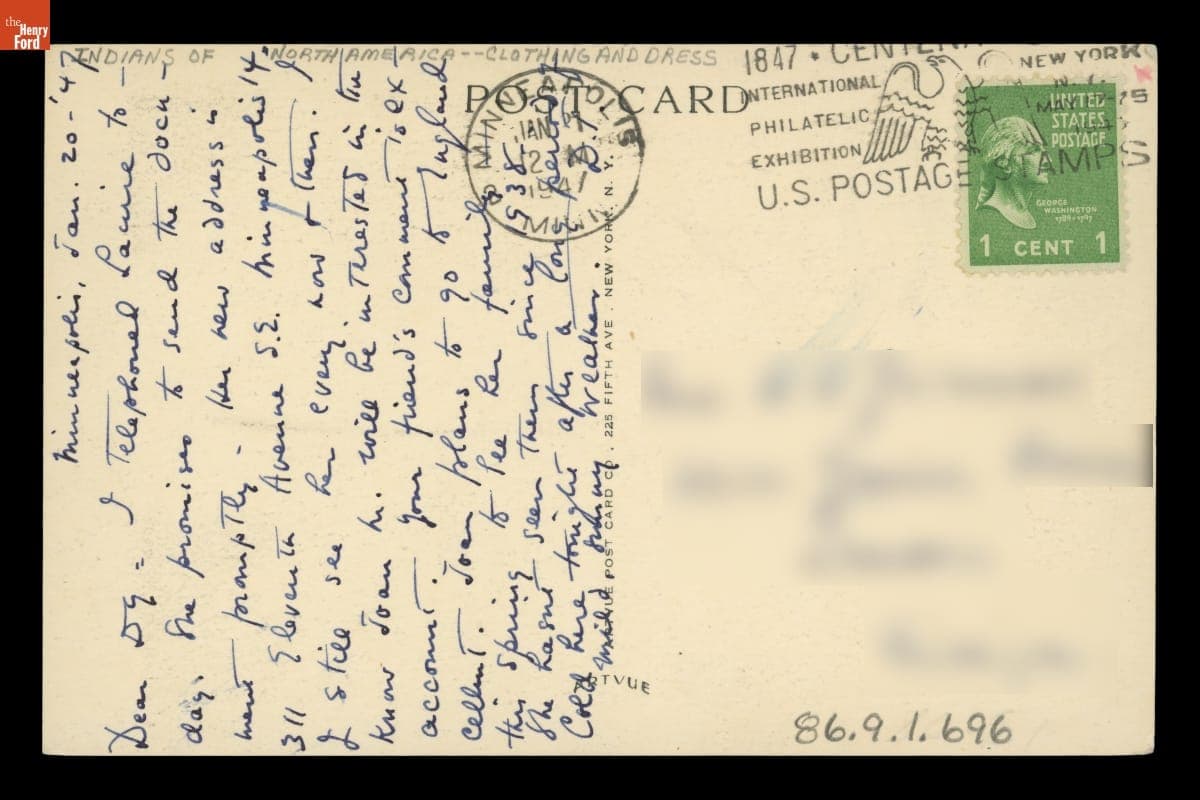 the
Henry
Ford
INDIANS OF NORTH AMERICA--CLOTHING AND DRESS
POST CARD
MINNEAPOLIS
JAN 21
12 M
1947
MINN.
1847 • CENTENA
INTERNATIONAL
PHILATELIC
EXHIBITION
U.S. POSTAGE STAMPS
NEW YORK
N.Y.
MAY 17-25
UNITED
STATES
POSTAGE
GEORGE
WASHINGTON
1789-1797
1 CENT 1
Minneapolis, Jan. 20-'47
Dear - I telephoned Laurie to-
day. She promises to send the docu-
ment promptly - Her new address is
311 Eleventh Avenue S.E. Minneapolis 14
I still see her every now & then. I
know Joan h. will be interested in the
account. Your friend's comment is ex
cellent. Joan plans to go to England
this spring to see her family
She hasn't seen them since 1938-
Cold here tonight after a long period of
mild sunny weather.
ARTVUE POST CARD CO., 225 FIFTH AVE., NEW YORK, N. Y.
ARTVUE
86.9.1.696